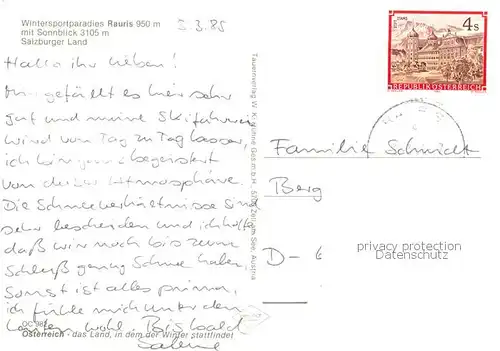 Wintersportparadies Rauris 950 m
mit Sonnblick 3105 m
Salzburger Land
3.3.85
Hallo ihr Lieben!
Mir gefällt es hier sehr
gut und meine Skifahrerei
wird von Tag zu Tag besser,
ich bin ganz begeistert
von der Atmosphäre.
Die Schneeverhältnisse sind
sehr bescheiden und ich hoffe,
daß wir noch bis zum
Schluß genug Schnee haben.
Sonst ist alles prima,
ich fühle mich unter den
Leuten wohl. Bis bald
Sabine
OC 98
Österreich - das Land, in dem der Winter stattfindet
Tauernverlag W. K. Kühne Ges.m.b.H. 5700 Zell am See, Austria
STIFT STAMS
4 S
REPUBLIK ÖSTERREICH
Familie Schmidt
Berg
D-
privacy protection
Datenschutz